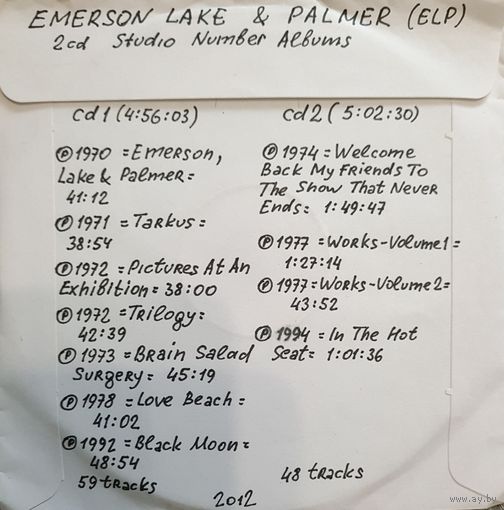 EMERSON LAKE & PALMER (ELP)
2cd Studio Number Albums
cd1 (4:56:03)
℗ 1970 = Emerson,
Lake & Palmer =
41:12
℗ 1971 = Tarkus =
38:54
℗ 1972 = Pictures At An
Exhibition = 38:00
℗ 1972 = Trilogy =
42:39
℗ 1973 = Brain Salad
Surgery = 45:19
℗ 1978 = Love Beach =
41:02
℗ 1992 = Black Moon =
48:54
59 tracks
cd2 (5:02:30)
℗ 1974 = Welcome
Back My Friends To
The Show That Never
Ends = 1:49:47
℗ 1977 = Works-Volume1 =
1:27:14
℗ 1977 = Works-Volume2 =
43:52
℗ 1994 = In The Hot
Seat = 1:01:36
48 tracks
2012
www.ay.by